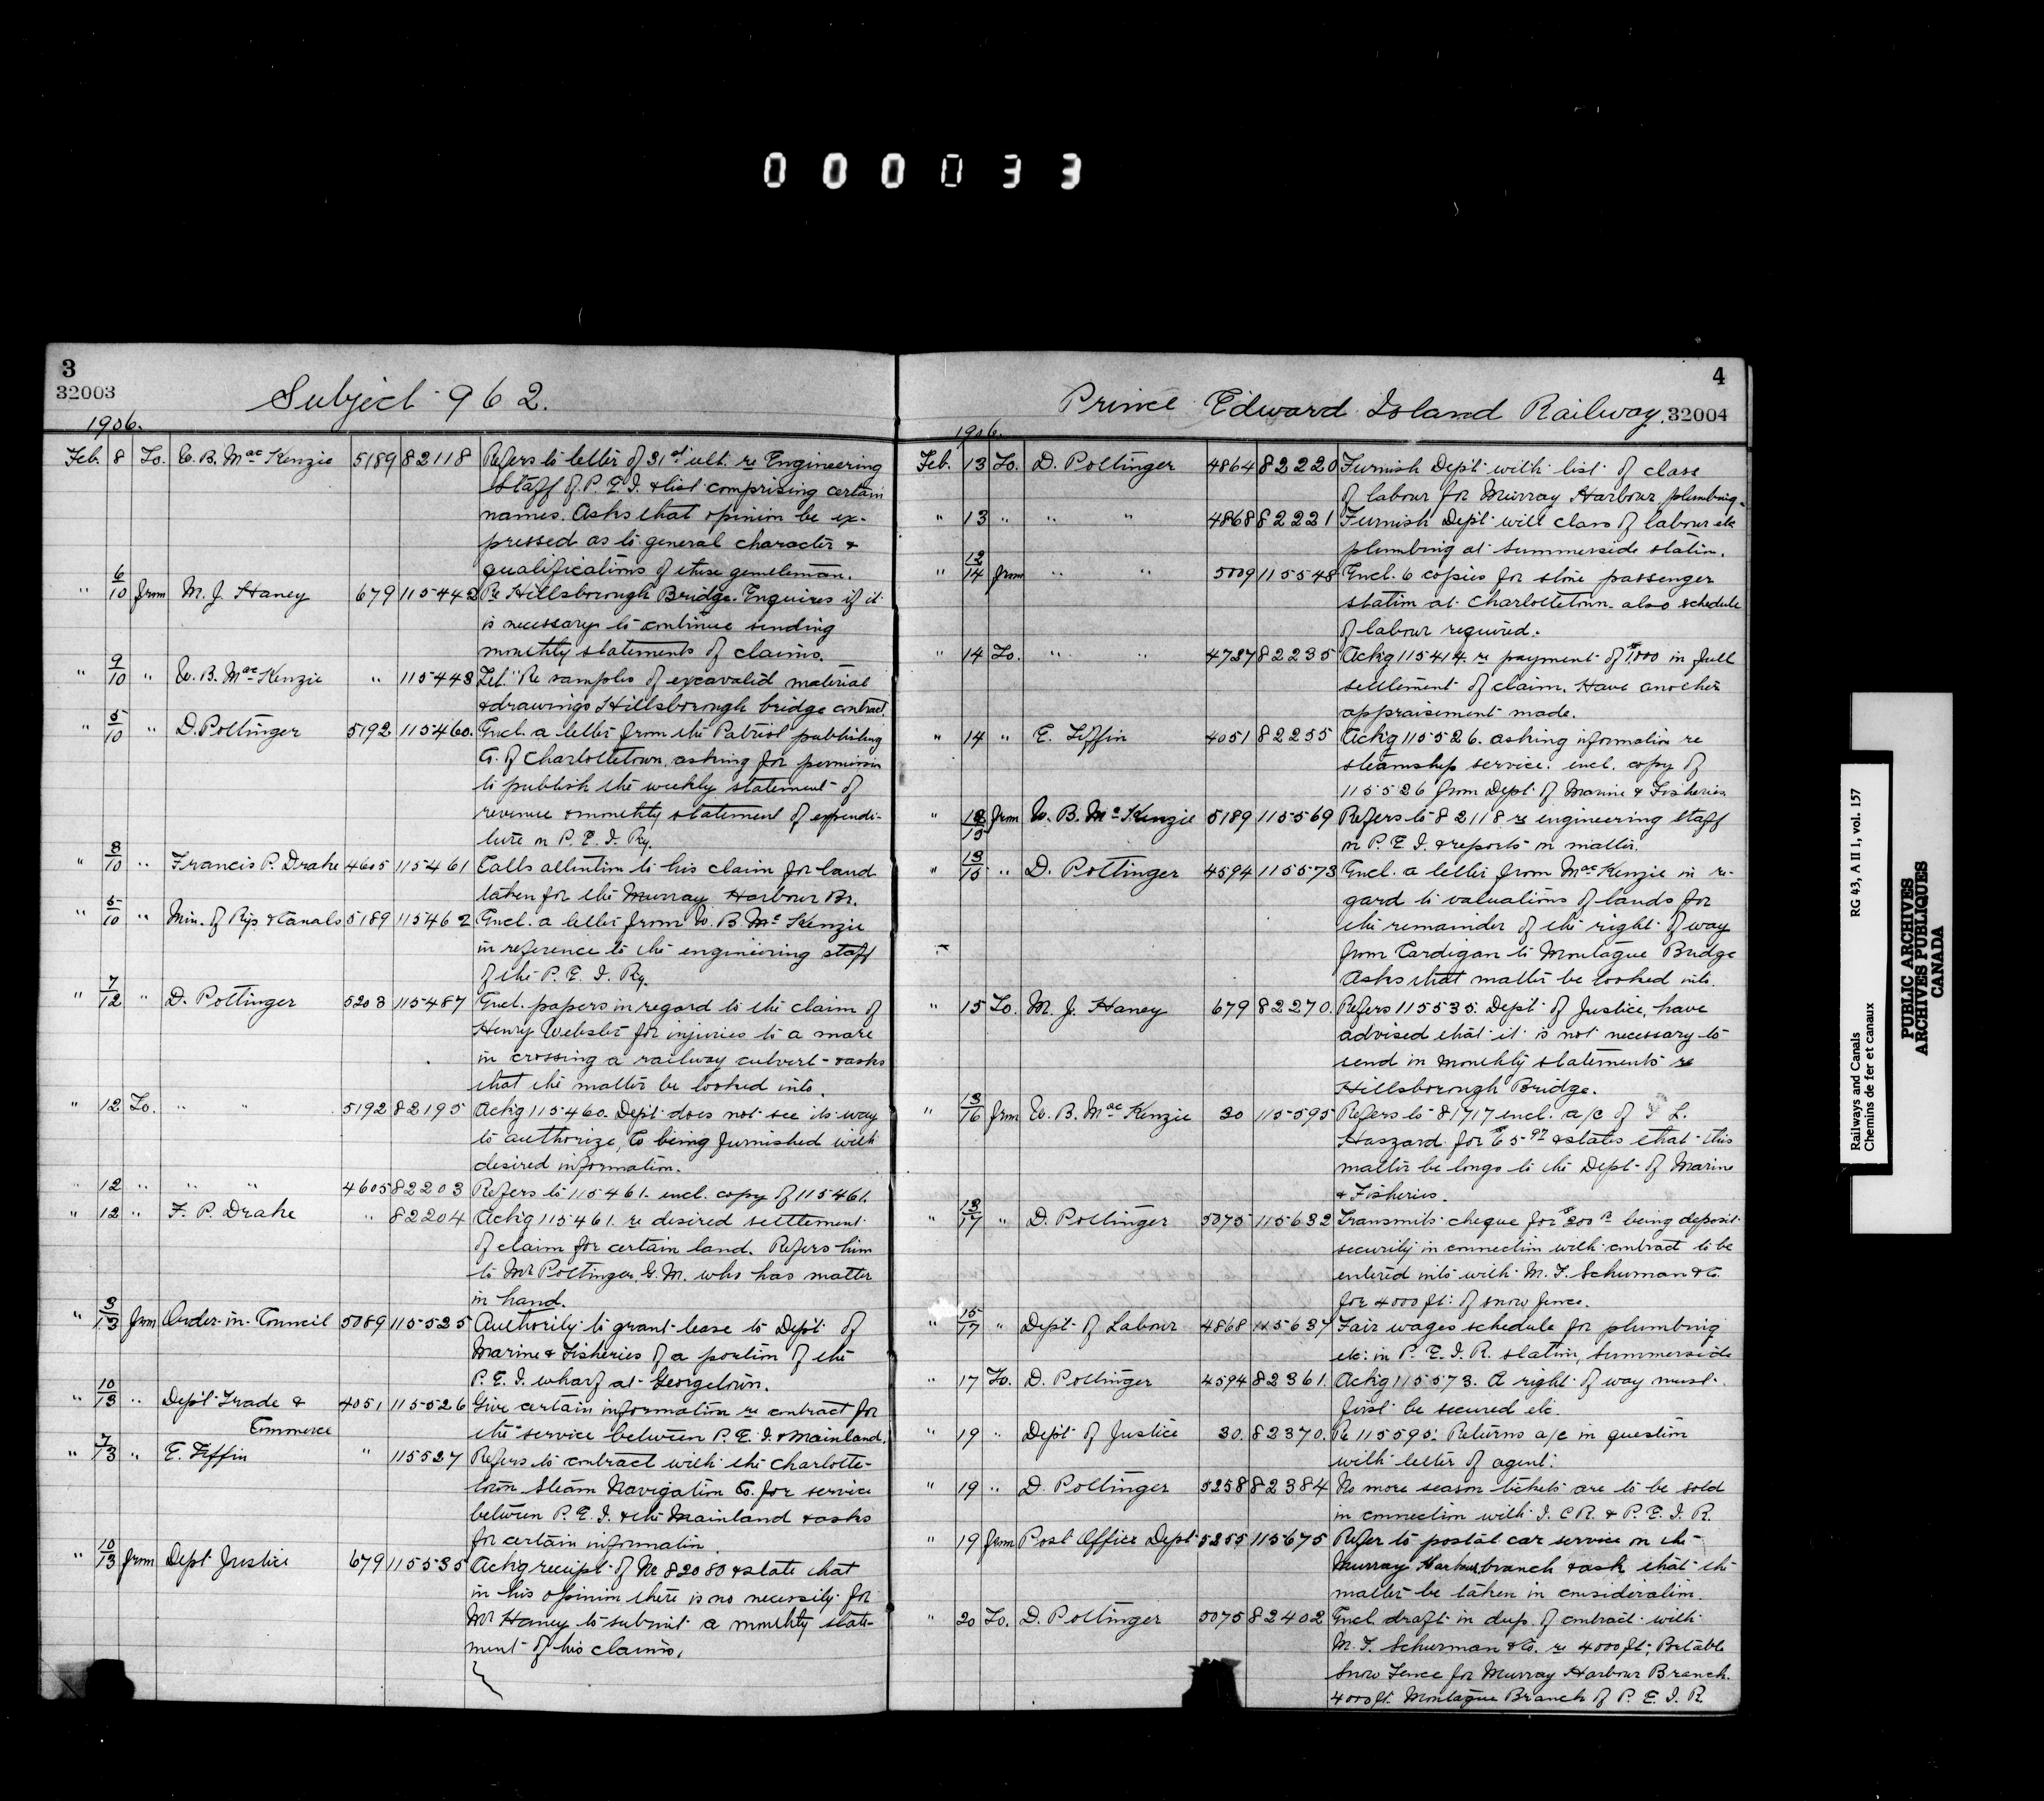 000033
3
32003
Subject 962.
1906.
Feb. 8 To. W. B. MacKenzie 5189 82118 Refers to letter of 31st ult. re Engineering
staff of P. E. I. & list comprising certain
names. Asks that opinion be ex-
pressed as to general character &
qualifications of these gentlemen.
" 6/10 from M. J. Haney 679 115442 Re Hillsborough Bridge. Enquires if it
is necessary to continue sending
monthly statements of claims.
" 9/10 " W. B. MacKenzie " 115443 Let. Re samples of excavated material
& drawings Hillsborough bridge contract.
" 5/10 " D. Pottinger 5192 115460. Encl. a letter from the Patriot publishing
Co. of Charlottetown, asking for permission
to publish the weekly statement of
revenue & monthly statement of expendi-
ture on P. E. I. Ry.
" 8/10 " Francis P. Drake 4605 115461 Calls attention to his claim for land
taken for the Murray Harbour Br.
" 5/10 " Min. of Rys & Canals 5189 115462 Encl. a letter from W. B. McKenzie
in reference to the engineering staff
of the P. E. I. Ry.
" 7/12 " D. Pottinger 5203 115487 Encl. papers in regard to the claim of
Henry Webster for injuries to a mare
in crossing a railway culvert & asks
that the matter be looked into.
" 12 To. " " 5192 82195 Ackg 115460. Dept does not see its way
to authorize, Co being furnished with
desired information.
" 12 " " " 4605 82203 Refers to 115461. encl. copy of 115461.
" 12 " F. P. Drake " 82204 Ackg 115461. re desired settlement
of claim for certain land. Refers him
to Mr Pottinger, G. M. who has matter
in hand.
" 3/13 from Order-in-Council 5089 115525 Authority to grant lease to Dept of
Marine & Fisheries of a portion of the
P. E. I. wharf at Georgetown.
" 10/13 " Dept Trade & 4051 115526 Give certain information re contract for
Commerce the service between P. E. I. & Mainland.
" 7/13 " E. Tiffin " 115527 Refers to contract with the Charlotte-
town Steam Navigation Co. for service
between P. E. I. & the Mainland & asks
for certain information.
" 10/13 from Dept Justice 679 115535 Ackg receipt of No 82080 & state that
in his opinion there is no necessity for
Mr Haney to submit a monthly state-
ment of his claims.
4
Prince Edward Island Railway. 32004
1906.
Feb. 13 To. D. Pottinger 4864 82220 Furnish Dept with list of class
of labour for Murray Harbour, plumbing.
" 13 " " " 4868 82221 Furnish Dept with class of labour etc
plumbing at Summerside station.
" 12/14 from " " 5009 115548 Encl. 6 copies for stone passenger
station at Charlottetown. also schedule
of labour required.
" 14 To. " " 4727 82235 Ackg 115414. re payment of $1000 in full
settlement of claim. Have another
appraisement made.
" 14 " E. Tiffin 4051 82255 Ackg 115526. asking information re
steamship service. encl. copy of
115526 from Dept of Marine & Fisheries
" 12/15 from W. B. McKenzie 5189 115569 Refers to 82118 re engineering staff
on P. E. I. & reports on matter.
" 13/15 " D. Pottinger 4594 115573 Encl. a letter from MacKenzie in re-
gard to valuations of lands for
the remainder of the right of way
from Cardigan to Montague Bridge
Asks that matter be looked into.
" 15 To. M. J. Haney 679 82270. Refers 115535. Dept of Justice, have
advised that it is not necessary to
send in monthly statements re
Hillsborough Bridge.
" 13/16 from W. B. MacKenzie 30 115595 Refers to 81717 encl. a/c of L.
Haszard for $65.97 & states that this
matter belongs to the Dept of Marine
& Fisheries.
" 13/17 " D. Pottinger 5075 115632 Transmits cheque for $200 being deposit
security in connection with contract to be
entered into with M. F. Schurman & Co.
for 4000 ft: of snow fence.
" 15/17 " Dept of Labour 4868 115637 Fair wages schedule for plumbing
etc: in P. E. I. R. station, Summerside
" 17 To. D. Pottinger 4594 82361. Ackg 115573. A right of way must
first be secured etc.
" 19 " Dept of Justice 30. 82370. Re 115595: Returns a/c in question
with letter of agent.
" 19 " D. Pottinger 5258 82384 No more season tickets are to be sold
in connection with I. C R. & P. E. I. R.
" 19 from Post Office Dept 5255 115675 Refer to postal car service on the
Murray Harbour branch & ask that the
matter be taken in consideration.
" 20 To. D. Pottinger 5075 82402 Encl draft in dup. of contract with
M. F. Schurman & Co. re 4000 ft; Portable
Snow Fence for Murray Harbour Branch.
4000 ft. Montague Branch of P. E. I. R.
Railways and Canals RG 43, A II 1, vol. 157
Chemins de fer et canaux
PUBLIC ARCHIVES
ARCHIVES PUBLIQUES
CANADA